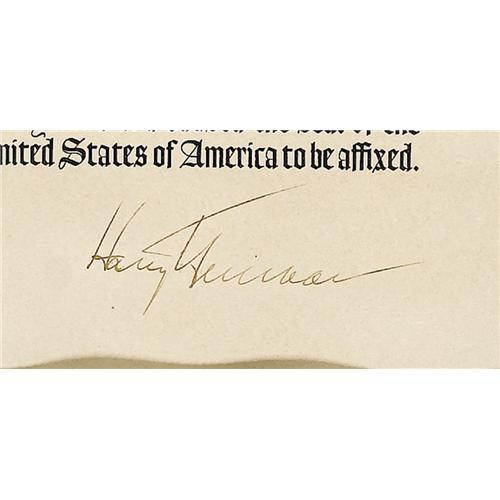 the seal of the
nited States of America to be affixed.
Harry Truman